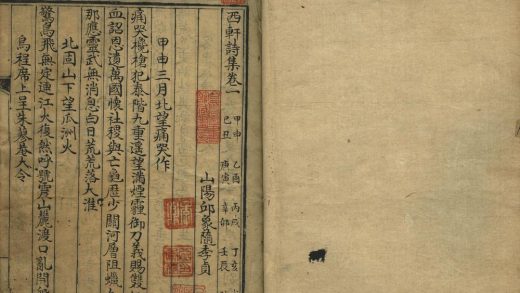 西軒詩集卷一
甲申 乙酉 丙戌 丁亥
己丑 庚寅 辛卯 壬辰
山陽邱象隨季貞
甲申三月北望痛哭作
痛哭欃槍犯泰階九重遙望滿煙霾御刀義賜雙
血詔恩遺萬國懷社稷與亡龜歷少關河層阻蠟
那應靈武無消息白日荒荒落大淮
北固山下望瓜洲火
驚烏飛無定連江火復然呼號震山麓渡口亂
烏程席上呈朱菴大令